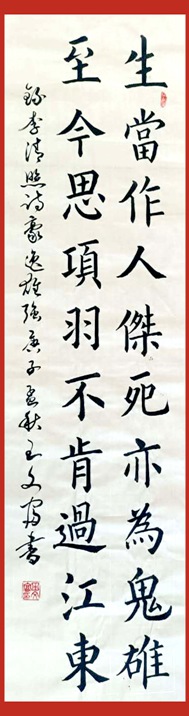 生當作人傑死亦為鬼雄
至今思項羽不肯過江東
錄李清照詩豪逸雄強庚子孟秋王文富書